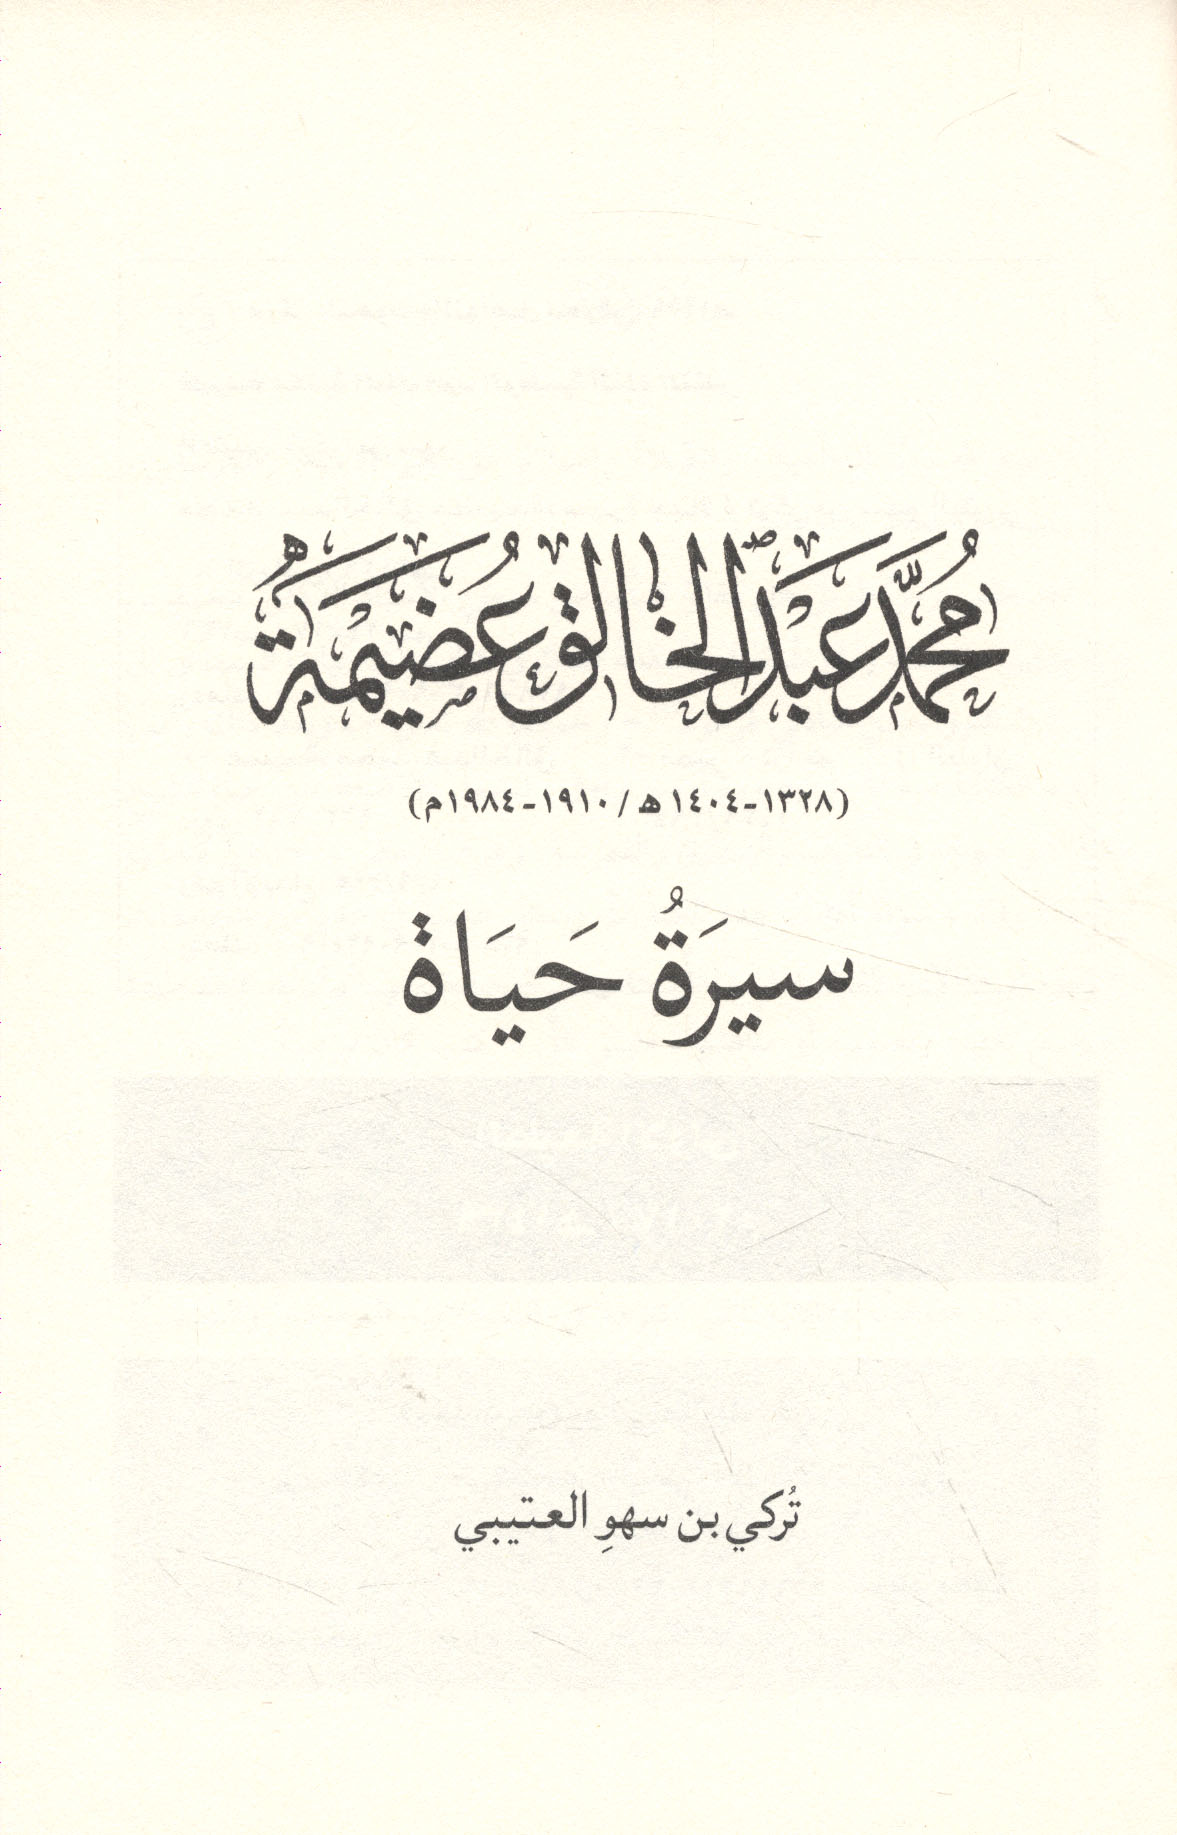 مُحَمَّد عَبْد الخَالِق عُضَيْمَة
(١٣٢٨-١٤٠٤ه‍/١٩١٠-١٩٨٤م)
سيرَةُ حَيَاة
تُركي بن سهوِ العتيبي